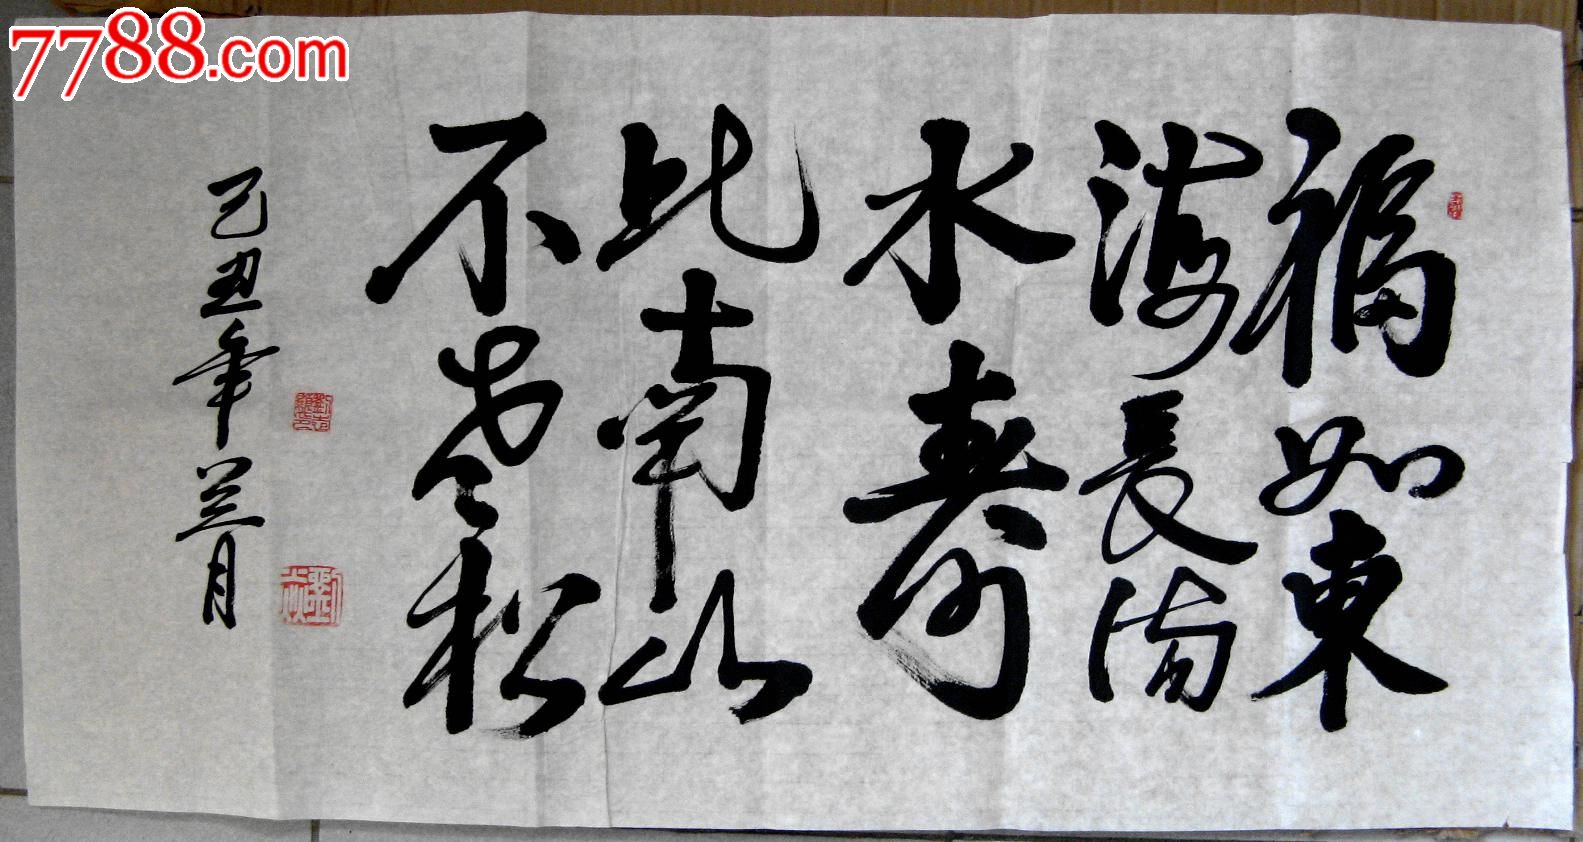 福如東
海長流
水壽
比南山
不老松
己丑年兰月
7788.com